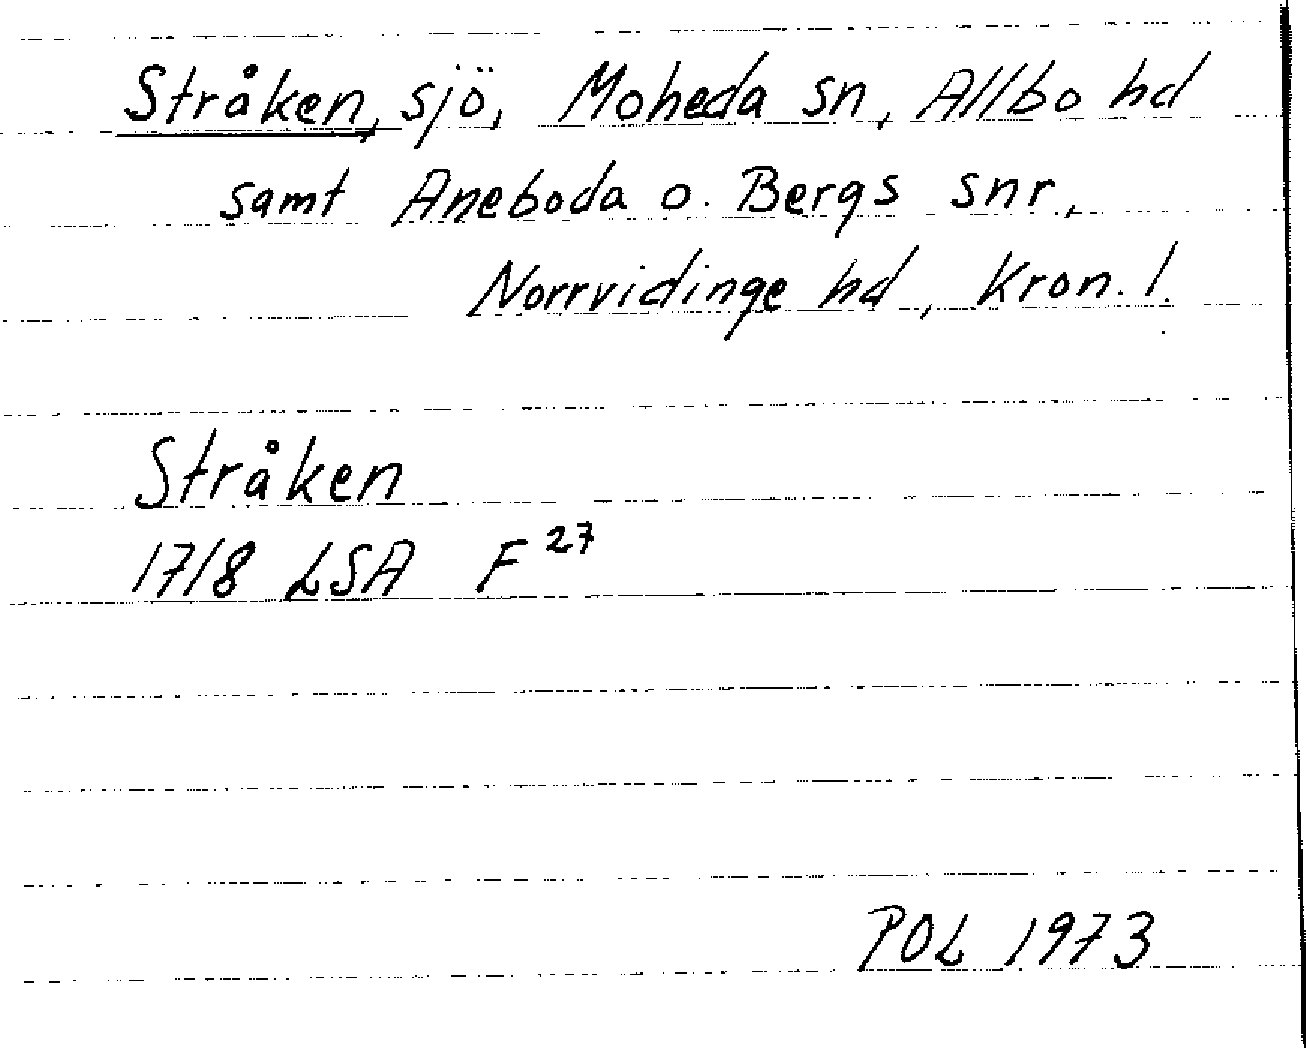 Stråken, sjö, Moheda sn, Allbo hd
samt Aneboda o. Bergs snr,
Norrvidinge hd, Kron. l.
Stråken
1718 LSA F 27
POL 1973